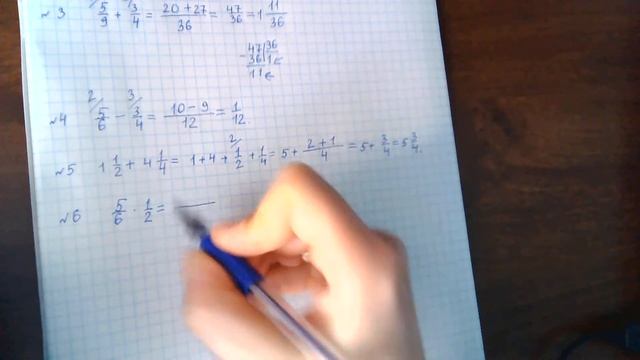 №3 5/9 + 3/4 = 20+27/36 = 47/36 = 1 11/36
- 47 | 36
36 | 1
11
2/ 3/
№4 5/6 - 3/4 = 10-9/12 = 1/12.
2/
№5 1 1/2 + 4 1/4 = 1+4+ 1/2 + 1/4 = 5+ 2+1/4 = 5+ 3/4 = 5 3/4.
№6 5/6 · 1/2 =